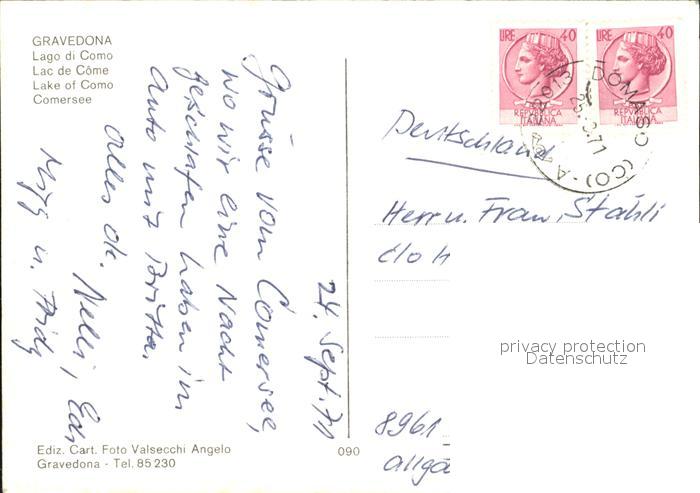 GRAVEDONA
Lago di Como
Lac de Côme
Lake of Como
Comersee
24. Sept. 71
Grüsse vom Comersee,
wo wir eine Nacht
geschlafen haben im
Auto mit Britta.
Alles ok.
Nelli, Edi
u.
Ediz. Cart. Foto Valsecchi Angelo
Gravedona - Tel. 85 230
090
LIRE 40
REPVBBLICA
ITALIANA
LIRE 40
REPVBBLICA
ITALIANA
22013 DOMASO (CO) - A
71
Deutschland
Herr u. Frau Stähli
c/o H
8961
Allgä
privacy protection
Datenschutz